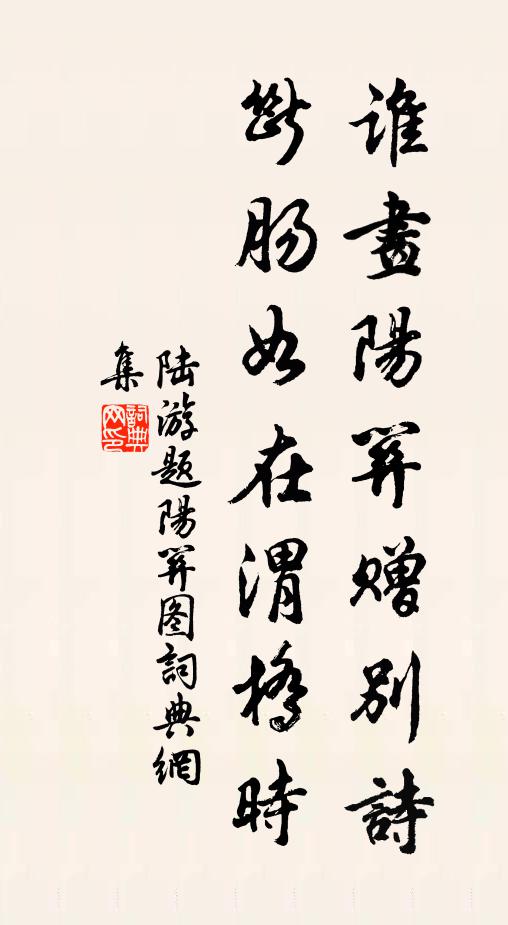 誰畫陽関贈別詩
斷腸如在渭橋時
陸游題陽関图詞典網
集
詞典网印